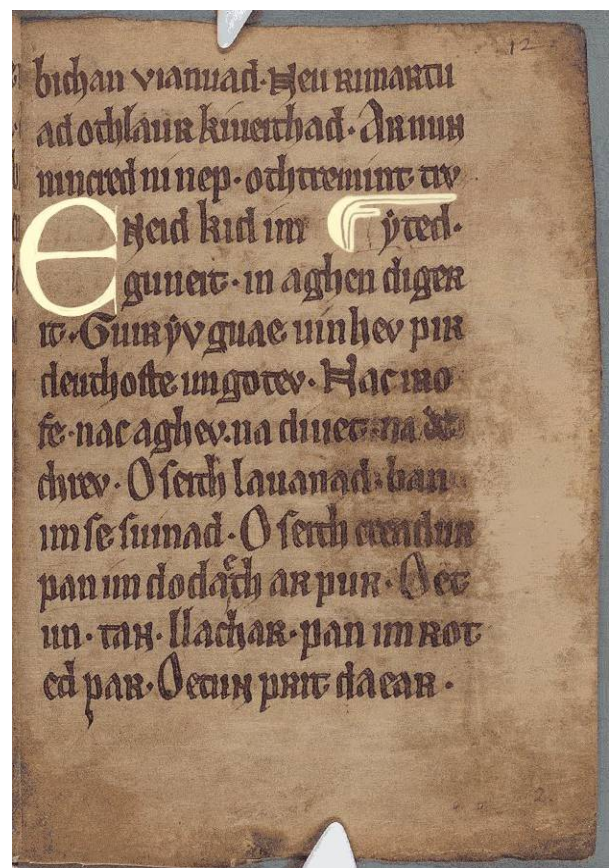 12
bichan vianuad. Neu rimartu
ad othlaur kiueithad. Ar nun
nincred ni nep. och tremint tru
Eneid kid im ẏted.
guneit. in aghen diger
it. Guir ẏv guae uinhev pir
deuthoste imgotev. Nac imo
fe. nac aghev. na diuet. na de
chrev. O seith lauanad. ban
im se suinad. O seith creadur
pan im dodaeth ar pur. Oet
un. tan. llachar. pan im rot
ed par. Oetun prit daear.
2.